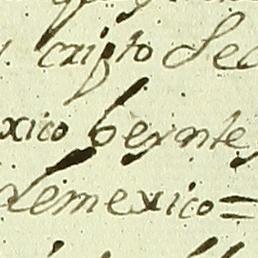 cripto Sec
xico beynte
demexico=